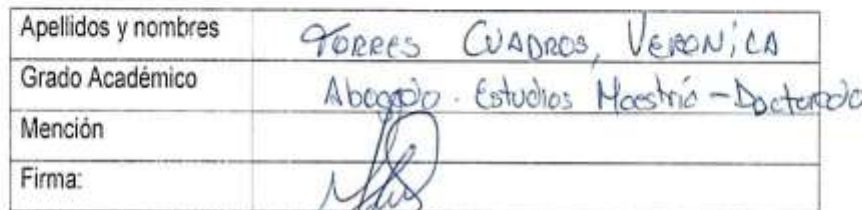 Apellidos y nombres TORRES CUADROS, VERONICA
Grado Académico Abogado. Estudios Maestría - Doctorado
Mención
Firma: